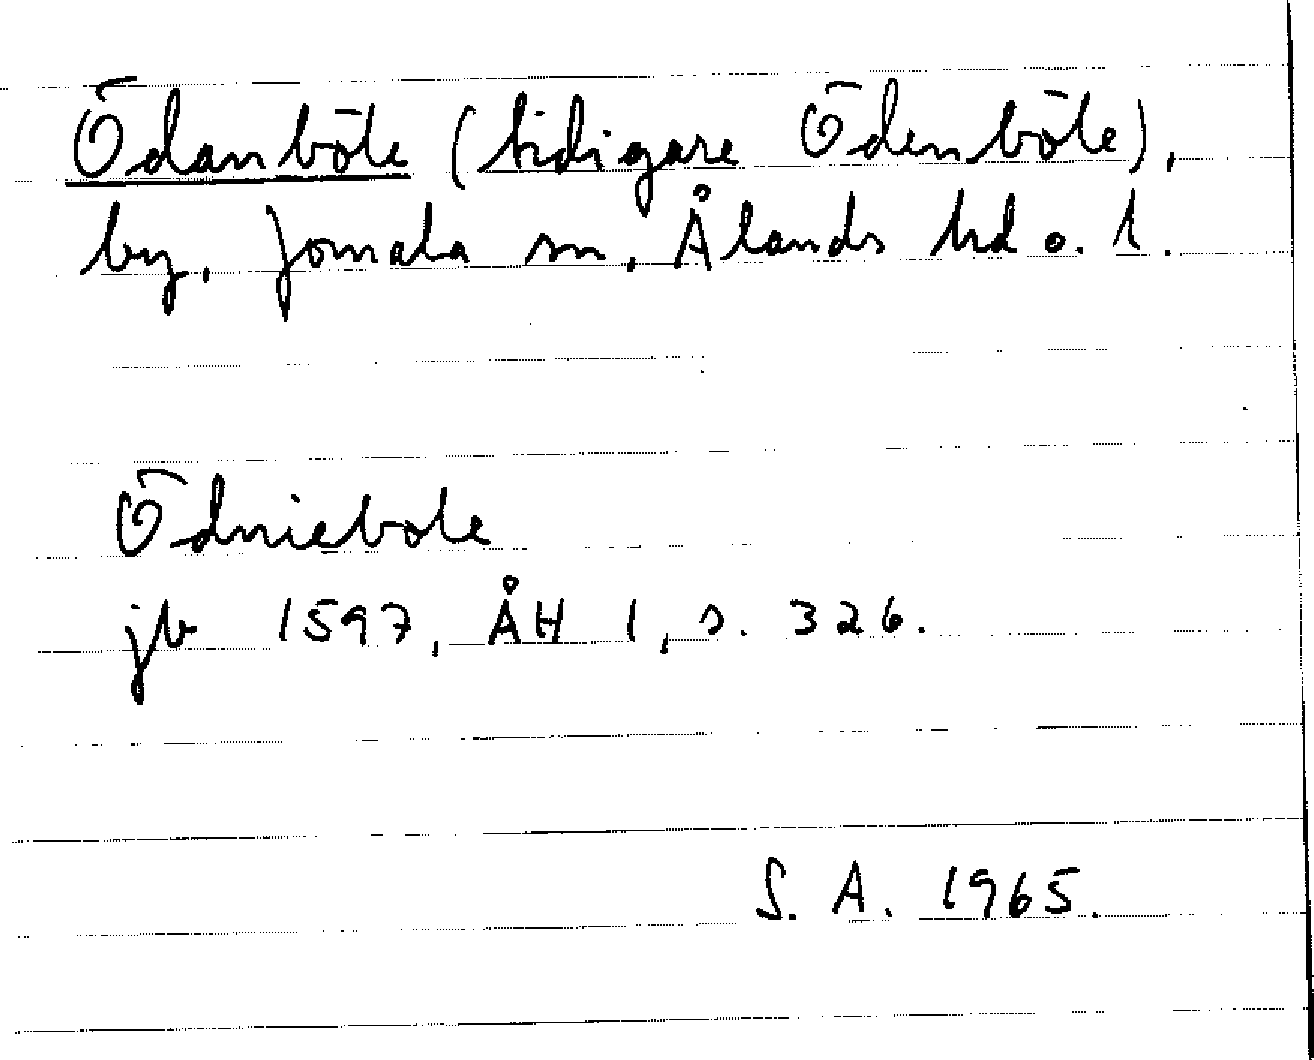 Ödanböle (tidigare Ödenböle),
by, Jomala sn, Ålands hd o. l.
Ödniebole
jb 1597, ÅH 1, s. 326.
S. A. 1965.